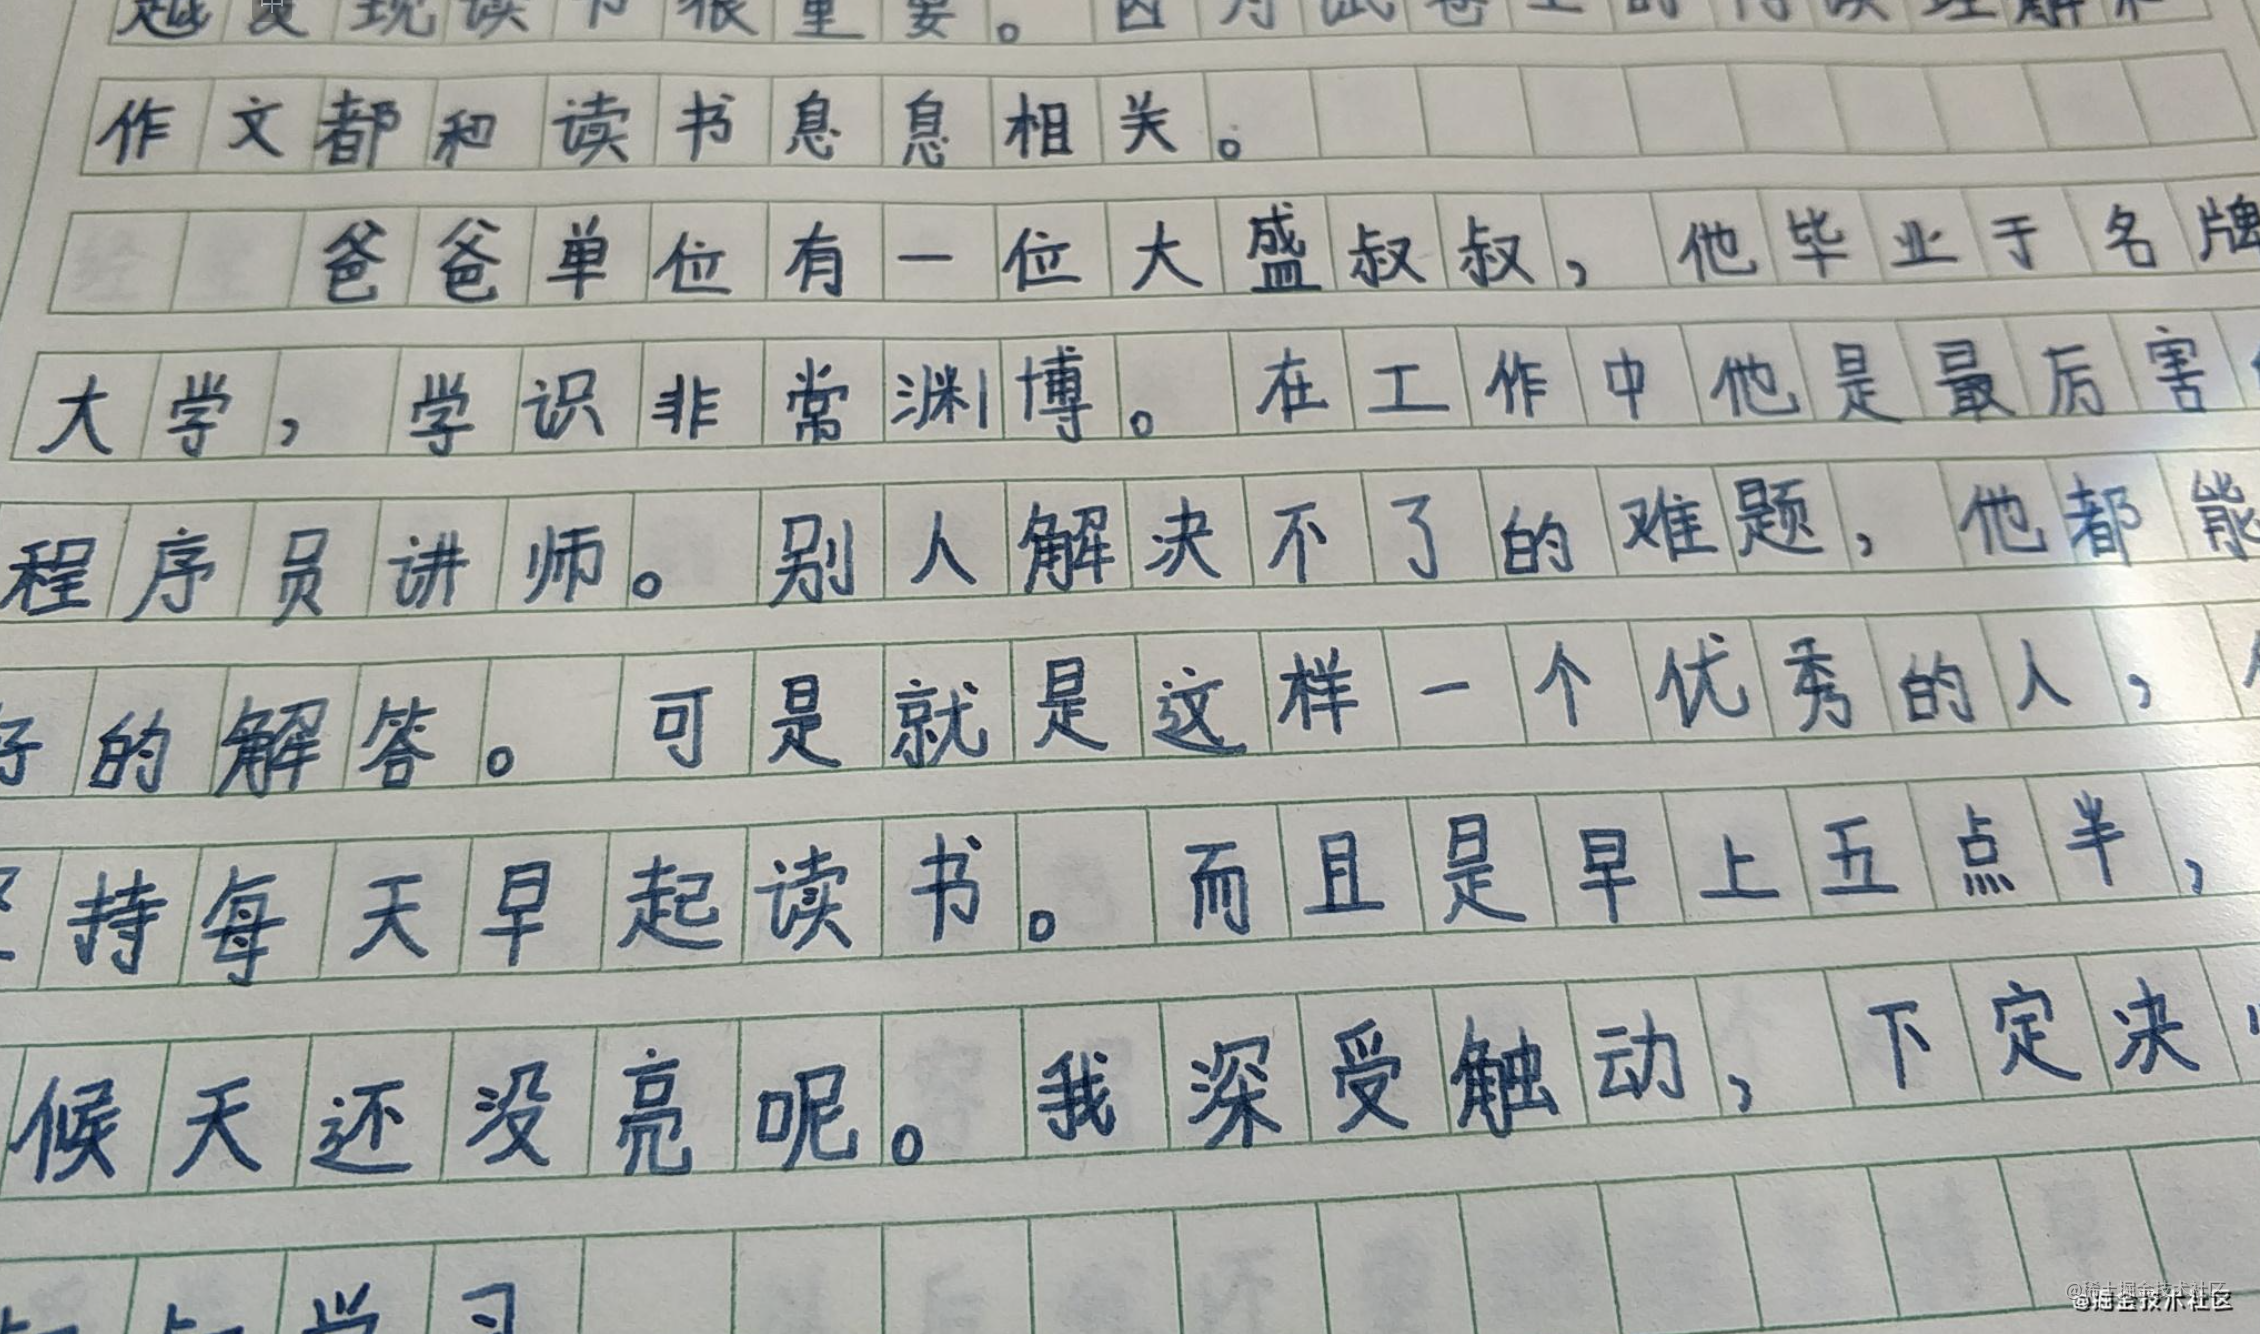 越发现读书很重要。因为试卷上的阅读理解和
作文都和读书息息相关。
爸爸单位有一位大盛叔叔，他毕业于名牌
大学，学识非常渊博。在工作中他是最厉害
程序员讲师。别人解决不了的难题，他都能
好的解答。可是就是这样一个优秀的人，
坚持每天早起读书。而且是早上五点半，
候天还没亮呢。我深受触动，下定决
学习
@稀土掘金技术社区
@掘金技术社区